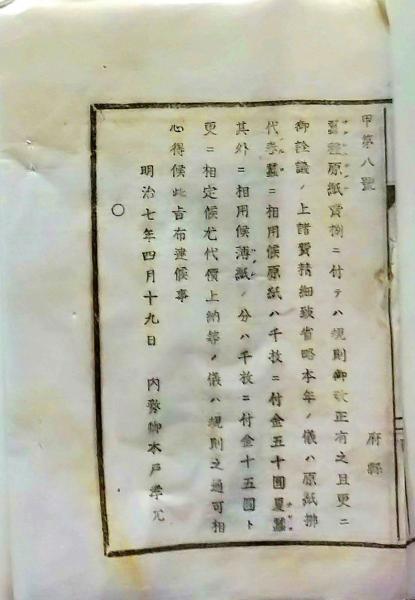 甲第八號
府縣
蠶種原紙賣捌ニ付テハ規則御改正有之且更ニ
御詮議ノ上諸費精細致省略本年ノ儀ハ原紙拂
代春蠶ニ相用候原紙ハ千枚ニ付金五十圓夏蠶
其外ニ相用候薄紙ノ分ハ千枚ニ付金十五圓ト
更ニ相定候尤代價上納等ノ儀ハ規則之通可相
心得候此旨布達候事
明治七年四月十九日 内務卿木戸孝允
○